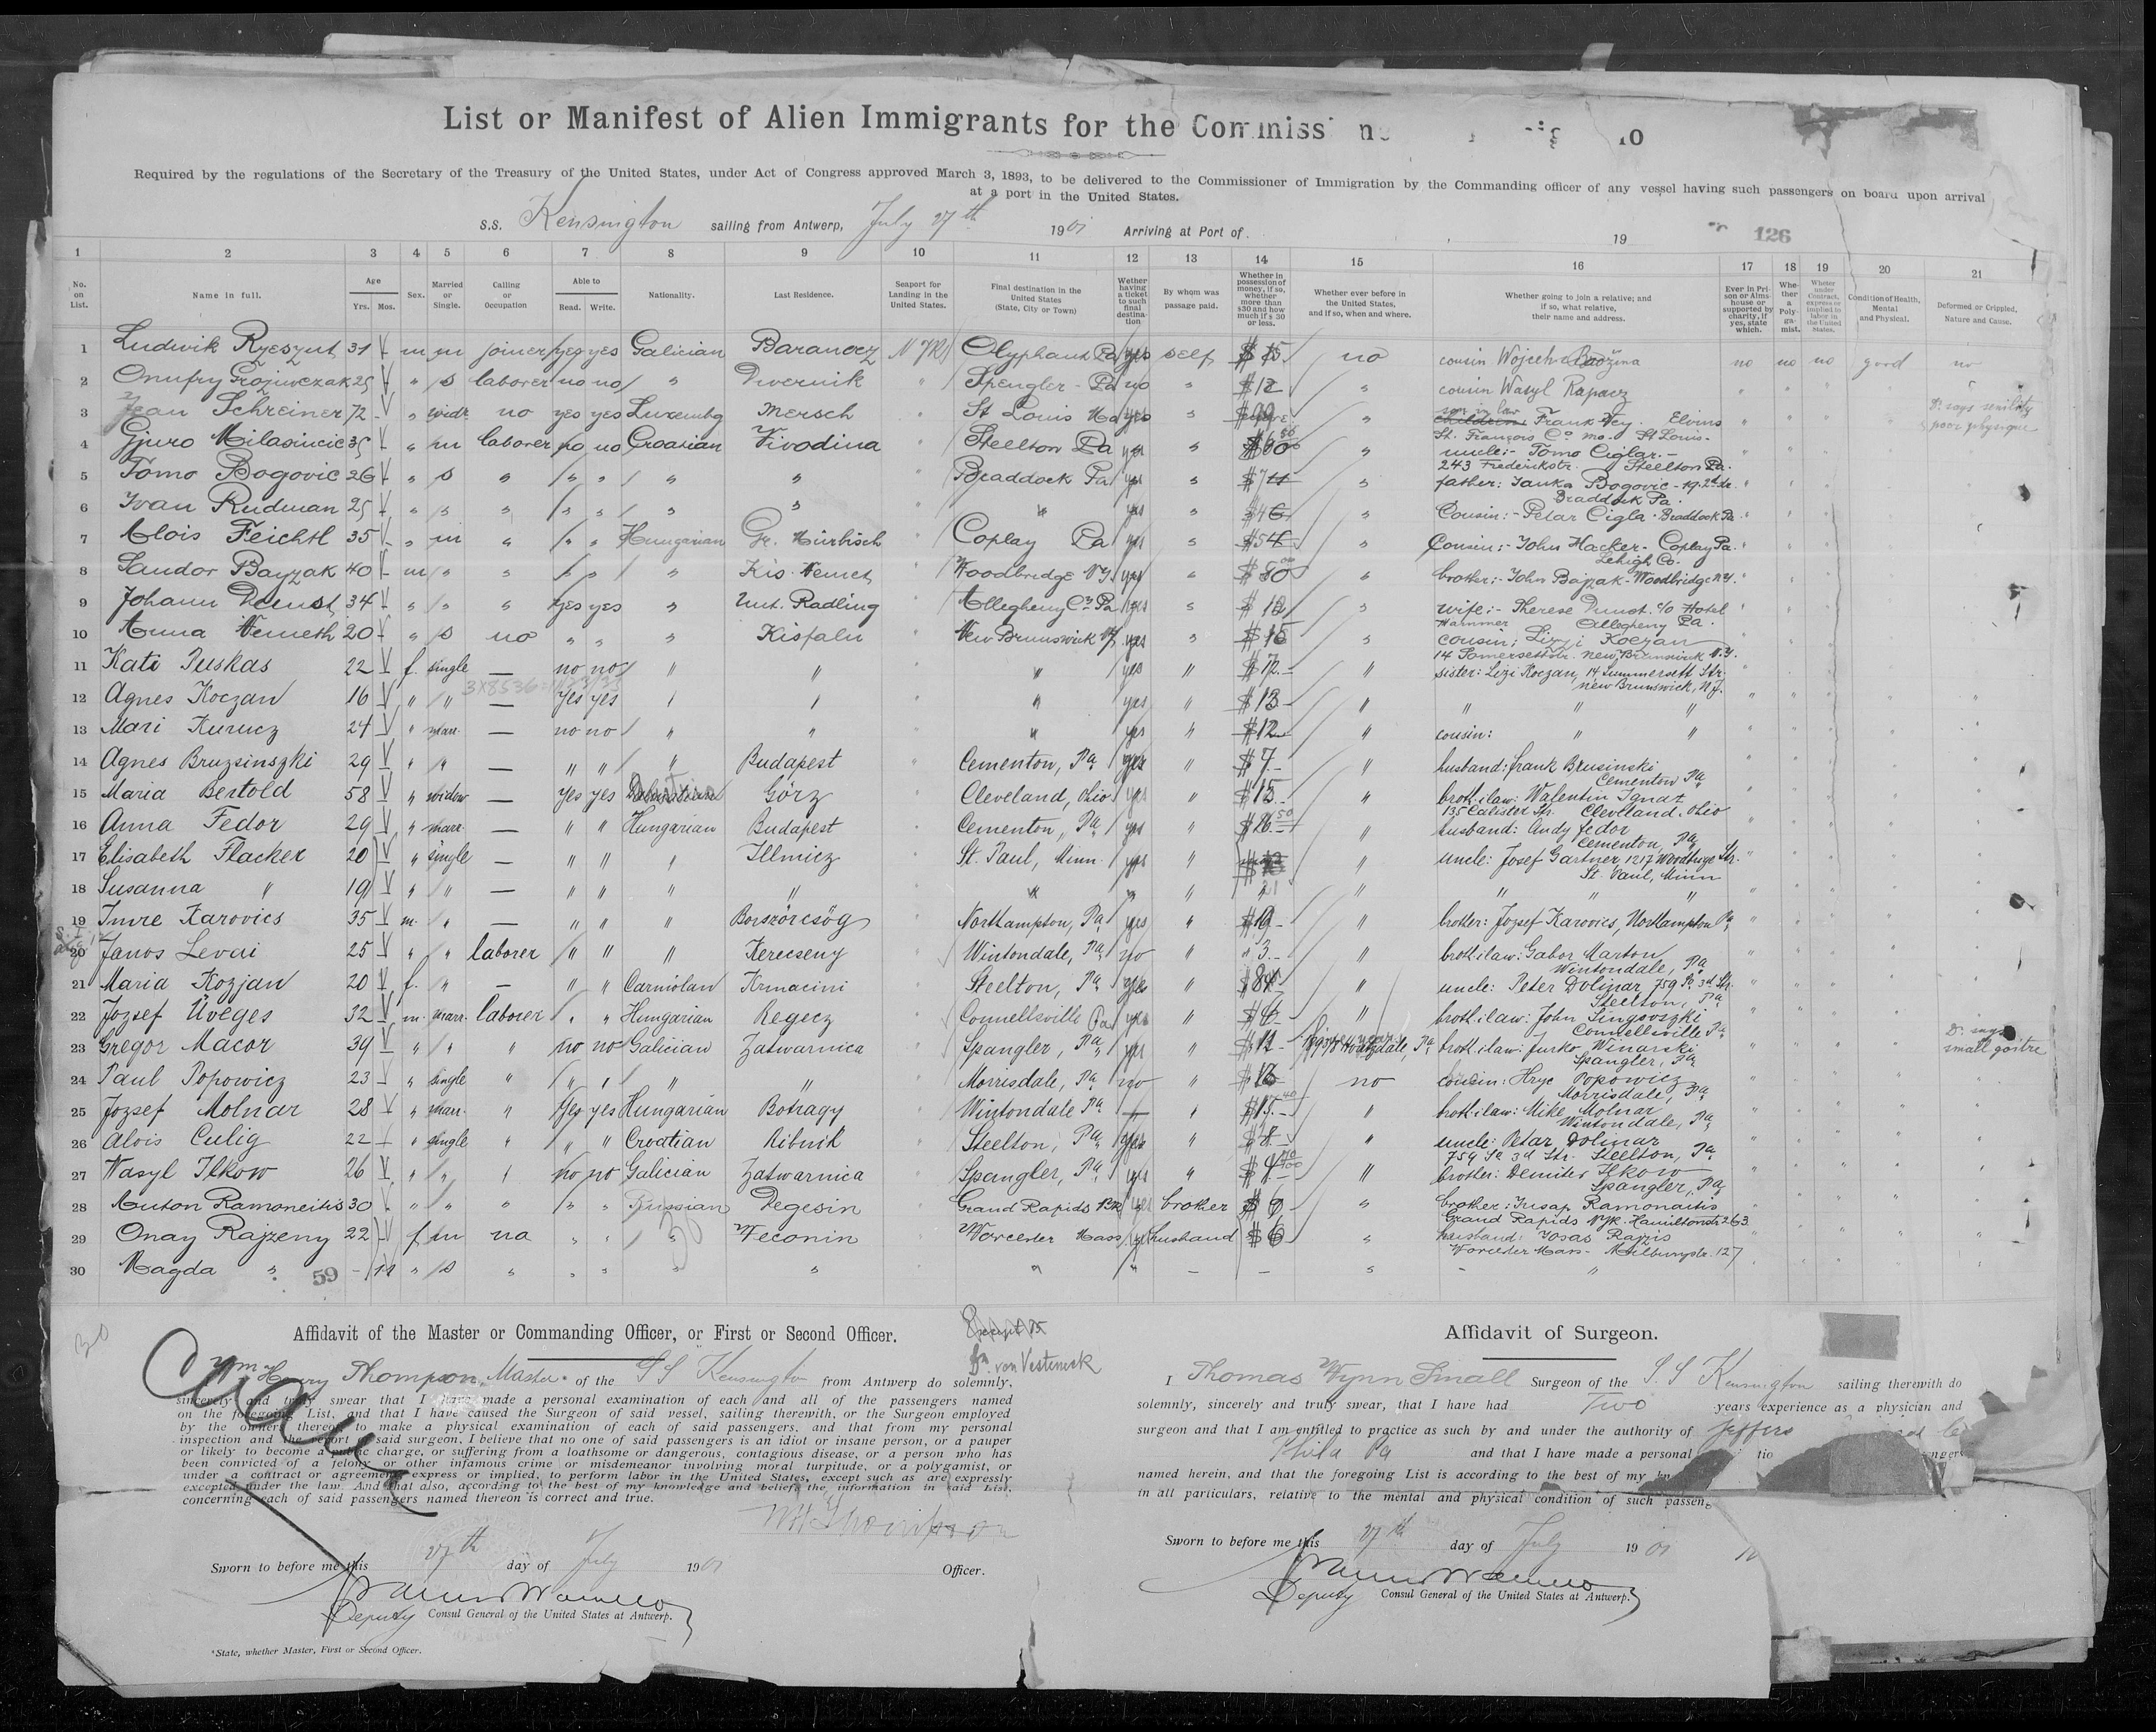 List or Manifest of Alien Immigrants for the Commiss
Required by the regulations of the Secretary of the Treasury of the United States, under Act of Congress approved March 3, 1893, to be delivered to the Commissioner of Immigration by the Commanding officer of any vessel having such passengers on board upon arrival
at a port in the United States.
S.S. Kensington sailing from Antwerp, July 27th 1901 Arriving at Port of 19 126
1 2 3 4 5 6 7 8 9 10 11 12 13 14 15 16 17 18 19 20 21
No. on List. Name in full. Age Yrs. Mos. Sex. Married or Single. Calling or Occupation Able to Read. Write. Nationality. Last Residence. Seaport for Landing in the United States. Final destination in the United States (State, City or Town) Wether having a ticket to such final destination By whom was passage paid. Whether in possession of money, if so, whether more than $30 and how much if $ 30 or less. Whether ever before in the United States, and if so, when and where. Whether going to join a relative; and if so, what relative, their name and address. Ever in Prison or Almshouse or supported by charity, if yes, state which. Whether a Polygamist. Wheter under Contract, express or implied to labor in the United States. Condition of Health, Mental and Physical. Deformed or Crippled, Nature and Cause.
1 Ludwik Ryeszut 31 m m joiner yes yes Galician Baranocz N York Olyphant Pa yes self $15 no cousin Wojceh no no no good no
2 Onufry Grojuvczak 25 " s laborer no no " Dwernik " Spengler - Pa no " $12 " cousin Wasyl Rapacz
3 Jean Schreiner 72 " widr. no yes yes Luxembg Mersch St Louis Mo yes " " son in law children Frank Wey. Elvins Dr. says senility
St. François Co mo. St Louis. poor physique
4 Gjuro Milasincic 35 " m laborer no no Croatian Vivodina Steelton Pa yes " " uncle:- Tomo Ciglar.-
243 Frederikstr. Steelton Pa.
5 Tomo Bogovic 26 " s " " " " " Braddock Pa yes " " father: Janko Bogovic - 19. 2d str.
Braddock Pa.
6 Ivan Rudman 25 " " " " " " " " yes " " Cousin:- Petar Cigla - Braddock Pa
7 Alois Feichtl 35 " m " " " Hungarian Gr. Mürbisch Coplay Pa yes " $54 " Cousin:- John Hacker - Coplay Pa.
Lehigh Co.
8 Sandor Bayzak 40 m " " " " " Kis. Nemet Woodbridge NY yes " $80 " brother:- John Bajzak - Woodbridge N.Y.
9 Johann Dunst 34 " " " yes yes " Unt. Radling Allegheny Cy Pa yes " $10 " wife:- Therese Dunst. c/o Hotel
Hammer Allegheny Pa.
10 Anna Nemeth 20 " s no " " " Kisfalu New Brunswick yes " $15 " cousin: Lizzi Koczan
14 Somersetstr. New Brunswick N.Y.
11 Kati Puskas 22 f. single — no no " " " yes " $12.- " sister: Lizi Koczan, 14 Summersett Str.
new Brunswick, N.J.
12 Agnes Koczan 16 " " — yes yes " " " yes " $13 " " " "
13 Mari Kurucz 24 " marr. — no no " " " yes " $12 " cousin: " "
14 Agnes Bruzsinszki 29 " " — " " " Budapest Cementon, Pa. yes " $7.- " husband: frank Brusinski
Cementon Pa
15 Maria Bertold 58 " widow — yes yes Görz Cleveland, Ohio yes " $15.- " broth.ilaw: Walentin Ignaz
135 Calister Str. Cleveland. Ohio
16 Anna Fedor 29 " marr. — " " Hungarian Budapest Cementon, Pa. yes " $16.50 " husband: Andy fedor
Cementon, Pa
17 Elisabeth Flacker 20 " single — " " " Illmicz St. Paul, Minn. yes " " uncle: Josef Gartner, 1217 Woodbrige Str.
St. Paul, Minn
18 Susanna " 19 " " — " " " " " " " " " " "
19 Imre Karovics 35 m. " — " " " Borszörcsög Northampton, Pa. yes " $19 " brother: Jozsef Karovics, Northampton Pa.
20 Janos Levai 25 " " laborer " " " Kerecseny Wintondale, Pa no " " 3.- " broth.ilaw: Gabor Marton
Wintondale, Pa
21 Maria Kozjan 20 f. " — " " Carniolan Krmacini Steelton, Pa yes " " uncle: Peter Dolinar, 759 So 3d Str.
Steelton, Pa
22 Jozsef Üveges 32 m. marr. laborer " " Hungarian Regecz Connellsville Pa yes " $6 " broth.ilaw: John Singovszki
Connellsville Pa
23 Gregor Macor 39 " " " no no Galician Zatwarnica Spangler, Pa. yes " $12 broth.ilaw: Jurko Winarski Dr. says
Spangler, Pa small goitre
24 Paul Popowicz 23 " single " " " " " Morrisdale, Pa no " no cousin: Hryc Popowicz
Morrisdale, Pa
25 Jozsef Molnar 28 " marr. " yes yes Hungarian Botragy Wintondale Pa — " " broth.ilaw: Mike Molnar
Wintondale, Pa
26 Alois Culig 22 " single " " " Croatian Ribnik Steelton, Pa yes " $8 " uncle: Petar Dolinar
759 So 3d Str. Steelton, Pa
27 Wasyl Ilkow 26 " " " no no Galician Zatwarnica Spangler, Pa. yes " " brother: Demiter Ilkow
Spangler, Pa
28 Anton Ramoneitis 30 " " " " " Russian Degesin Grand Rapids yes brother $6 " brother: Jusap Ramonaitis
Grand Rapids Hamiltonstr 263
29 Onay Rajzeny 22 f m no " " " Weconin Worcester Mass husband $6 " husband: Josas Rajzis
Worcester Mass - Milburystr. 127
30 Magda " 59 - 11 " s " " " " " " " — — " - "
Affidavit of the Master or Commanding Officer, or First or Second Officer.
Wm Henry Thompson, Master of the S S Kensington from Antwerp do solemnly,
sincerely and truly swear that I have made a personal examination of each and all of the passengers named
on the foregoing List, and that I have caused the Surgeon of said vessel, sailing therewith, or the Surgeon employed
by the owners thereof to make a physical examination of each of said passengers, and that from my personal
inspection and the report of said surgeon, I believe that no one of said passengers is an idiot or insane person, or a pauper
or likely to become a public charge, or suffering from a loathsome or dangerous, contagious disease, or a person who has
been convicted of a felony or other infamous crime or misdemeanor involving moral turpitude, or a polygamist, or
under a contract or agreement express or implied, to perform labor in the United States, except such as are expressly
excepted under the law. And that also, according to the best of my knowledge and beliefs the information in said List,
concerning each of said passengers named thereon is correct and true.
WH Thompson
Sworn to before me this 27th day of July 1901 Officer.
Deputy Consul General of the United States at Antwerp.
*State, whether Master, First or Second Officer.
Affidavit of Surgeon.
I Thomas Wynn Small Surgeon of the S. S Kensington sailing therewith do
solemnly, sincerely and truly swear, that I have had Two years experience as a physician and
surgeon and that I am entitled to practice as such by and under the authority of Jeffers
Phila Pa and that I have made a personal
named herein, and that the foregoing List is according to the best of my
in all particulars, relative to the mental and physical condition of such passen
Sworn to before me this 27th day of July 1901
Deputy Consul General of the United States at Antwerp.